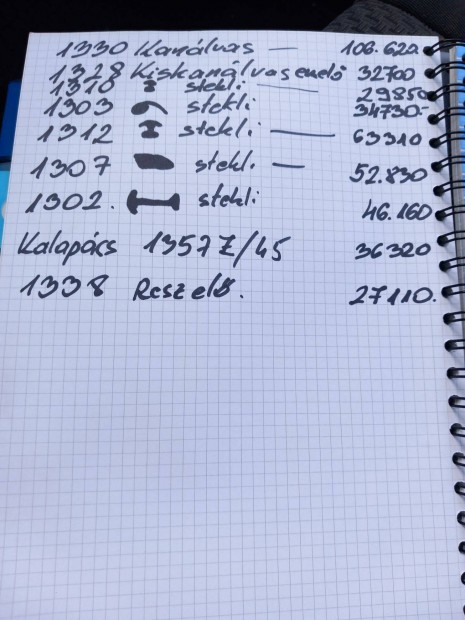 1330 Kanálvas — 106.620.
1328 Kiskanálvasemelő 32700
1310 stekli — 29850
1303 stekli 34730.-
1312 stekli — 63310
1307 stekli. — 52.830
1302. stekli 46.160
Kalapács 1357Z/45 36320
1338 Reszelő. 27110.